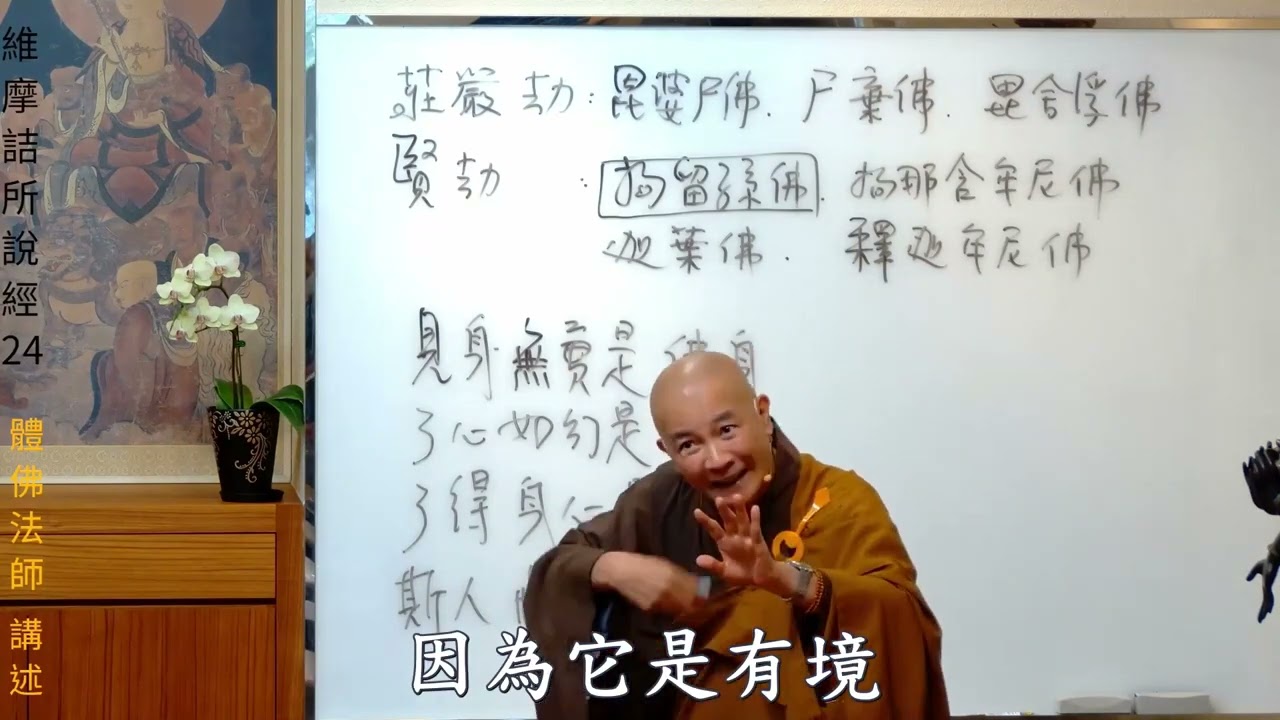 維摩詰所說經24
體佛法師講述
莊嚴劫：毘婆尸佛．尸棄佛．毘舍浮佛
賢劫：拘留孫佛．拘那含牟尼佛
迦葉佛．釋迦牟尼佛
見身無實是佛身
了心如幻是
了得身心
斯人
因為它是有境